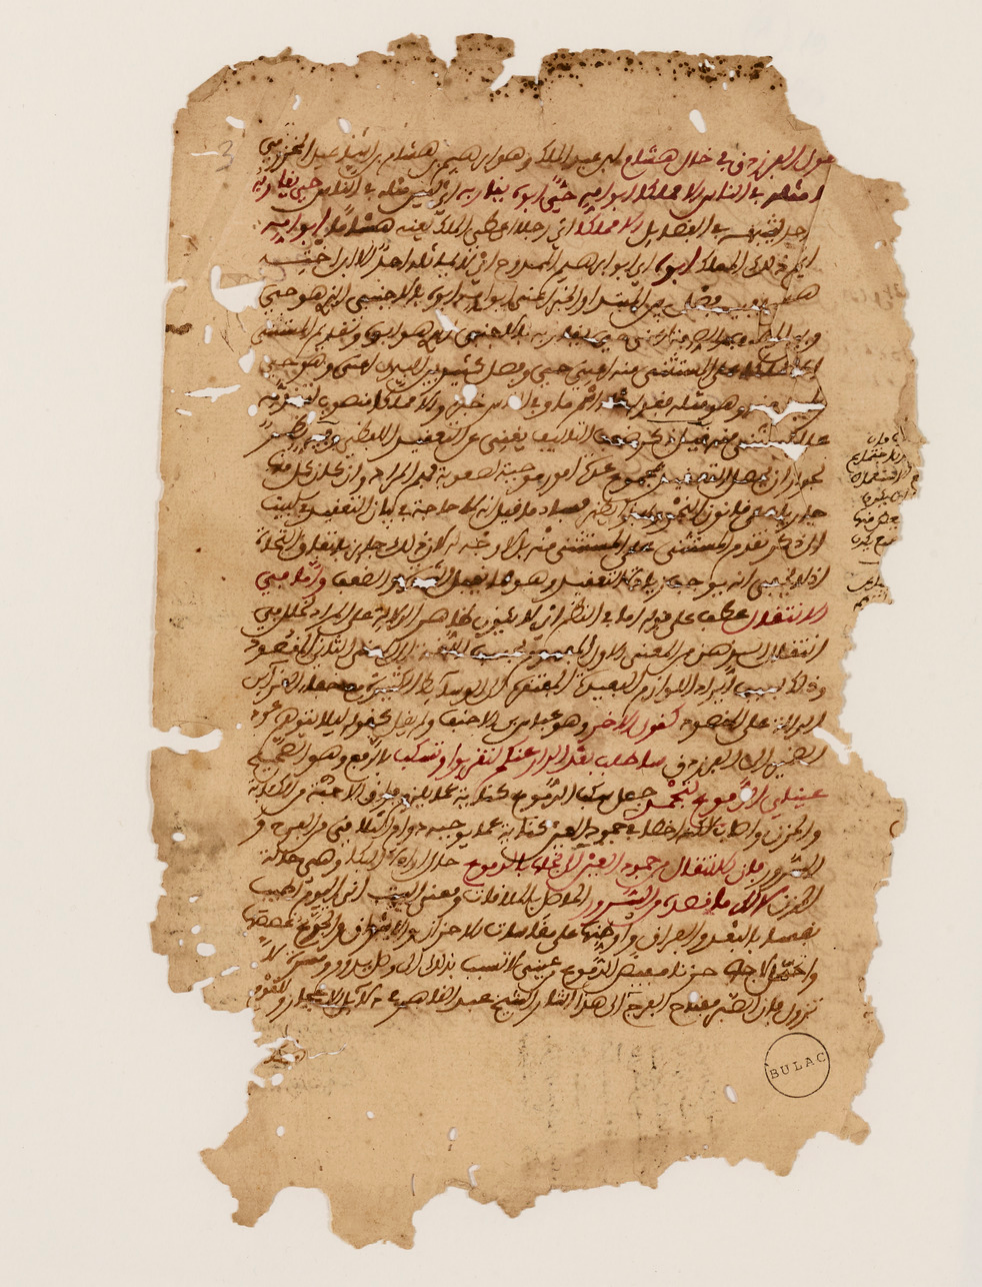 كقول الفرزدق في خال هشام بن عبد الملك وهو ابرهيم بن هشام بن اسمعيل المخزومي
وما مثله في الناس الا مملكا ابو امه حي ابوه يقاربه اي ليس مثله في الناس حي يقاربه
احد يشبهه في الفضايل الا مملكا اي رجلا اعطي الملك يعني هشاما ابو امه
اي ام ذلك المملك ابوه اي ابو ابرهيم الممدوح اي لا يماثله احد الا ابن اخته
هشام ففيه فصل بين المبتدا والخبر اعني ابو امه ابوه بالاجنبي الذي هو حي
وبين الموصوف والصفة اعني حي يقاربه بالاجنبي الذي هو ابوه وتقديم المستثنى
اعني مملكا على المستثنى منه اعني حي وفصل كثير بين البدل اعني وهو حي
والمبدل منه وهو مثله فقوله مثله اسم ما وفي الناس خبره والا مملكا منصوب لتقدمه
على المستثنى منه قيل ذكر ضعف التاليف يغني عن التعقيد اللفظي وفيه نظر
لجواز ان يحصل التعقيد بمجموع عدة امور موجبة لصعوبة فهم المراد وان كان كل منها
جاريا على قانون النحو وبهذا يظهر فساد ما قيل انه لا حاجة في بيان التعقيد في البيت
الى ذكر تقدم المستثنى على المستثنى منه بل لا وجه له لان ذلك جايز باتفاق النحاة
اذ لا يخفى انه يوجب زيادة التعقيد وهو مما يقبل الشدة والضعف واما في
الانتقال عطف على قوله اما في النظم اي لا يكون ظاهر الدلالة على المراد لخلل في
انتقال الذهن من المعنى الاول المفهوم بحسب اللغة الى المعنى الثاني المقصود
وذلك بسبب ايراد اللوازم البعيدة المفتقرة الى الوسايط الكثيرة مع خفاء القراين
الدالة على المقصود كقول الاخر وهو عباس بن الاحنف ولم يقل كقوله ليلا يتوهم عود
الضمير الى الفرزدق ساطلب بعد الدار عنكم لتقربوا وتسكب بالرفع وهو الصحيح
عيناي الدموع لتجمدا جعل سكب الدموع كناية عما يلزم فراق الاحبة من الكابة
والحزن واصاب لكنه اخطا في جمود العين كناية عما يوجبه دوام التلاقي من الفرح و
السرور فان الانتقال من جمود العين الى بخلها بالدموع حال ارادة البكا وهي حالة
الحزن لا الى ما قصده من السرور الحاصل بالملاقات ومعنى البيت اني اليوم اطيب
نفسا بالبعد والفراق واوطنها على مقاسات الاحزان والاشواق واتجرع غصصها
واتحمل لاجلها حزنا يفيض الدموع من عيني لاتسبب بذلك الى وصل يدوم ومسرة لا
تزول فان الصبر مفتاح الفرج الى هذا اشار الشيخ عبد القاهر في دلايل الاعجاز وللقوم
BULAC